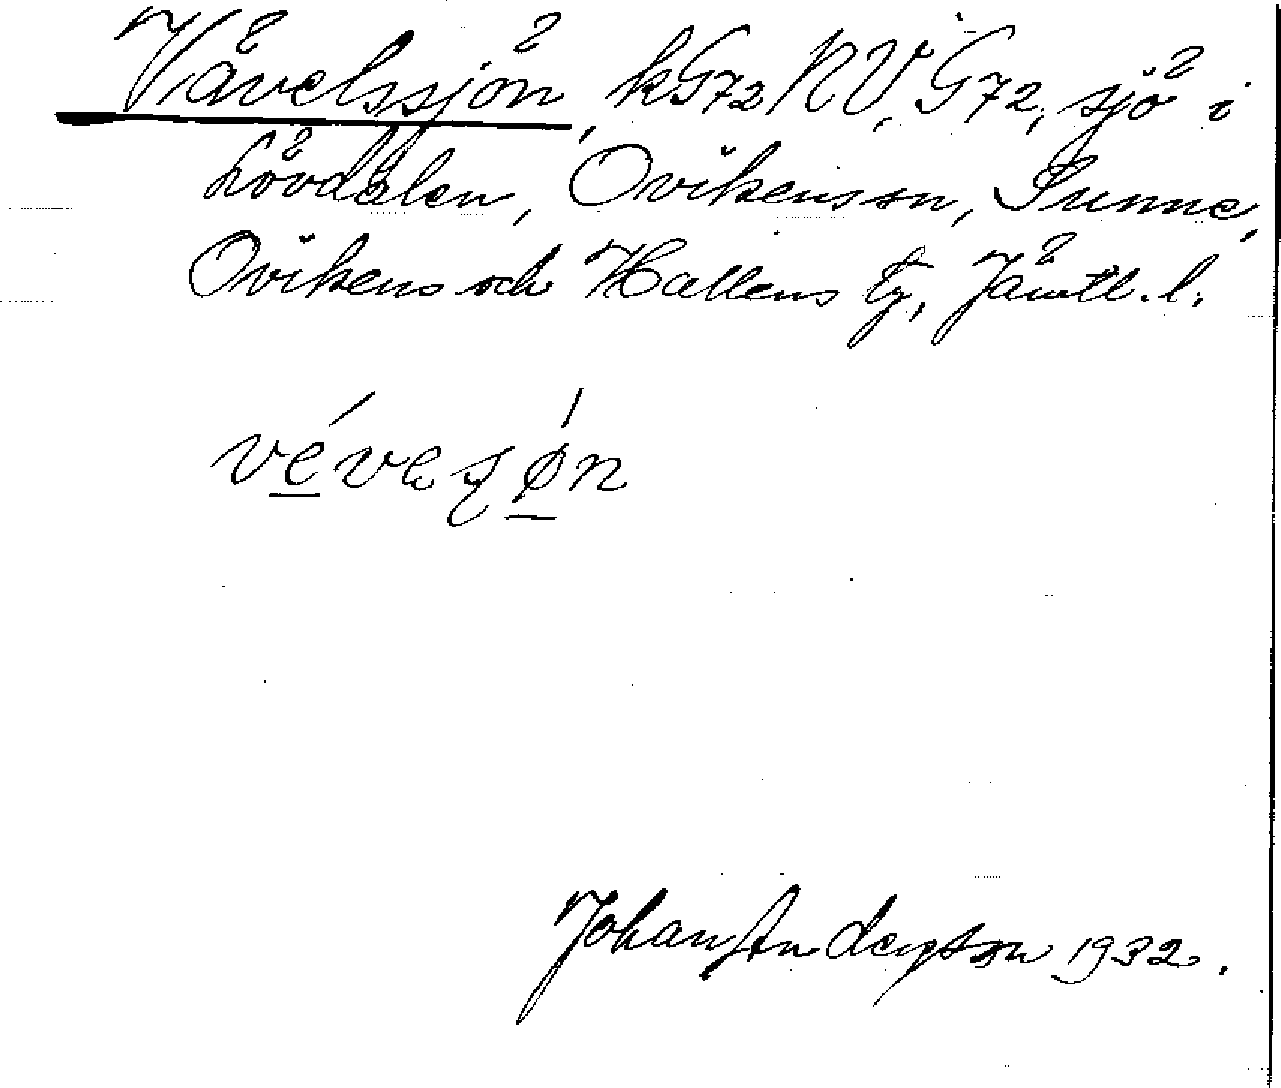 Vävelssjön, kG72 NV, G72, sjö i
Lövdalen, Ovikenson, Sunne,
Ovikens och Hallens tg, Jämtl. l.
vévesøn
Johan Anderson 1932.